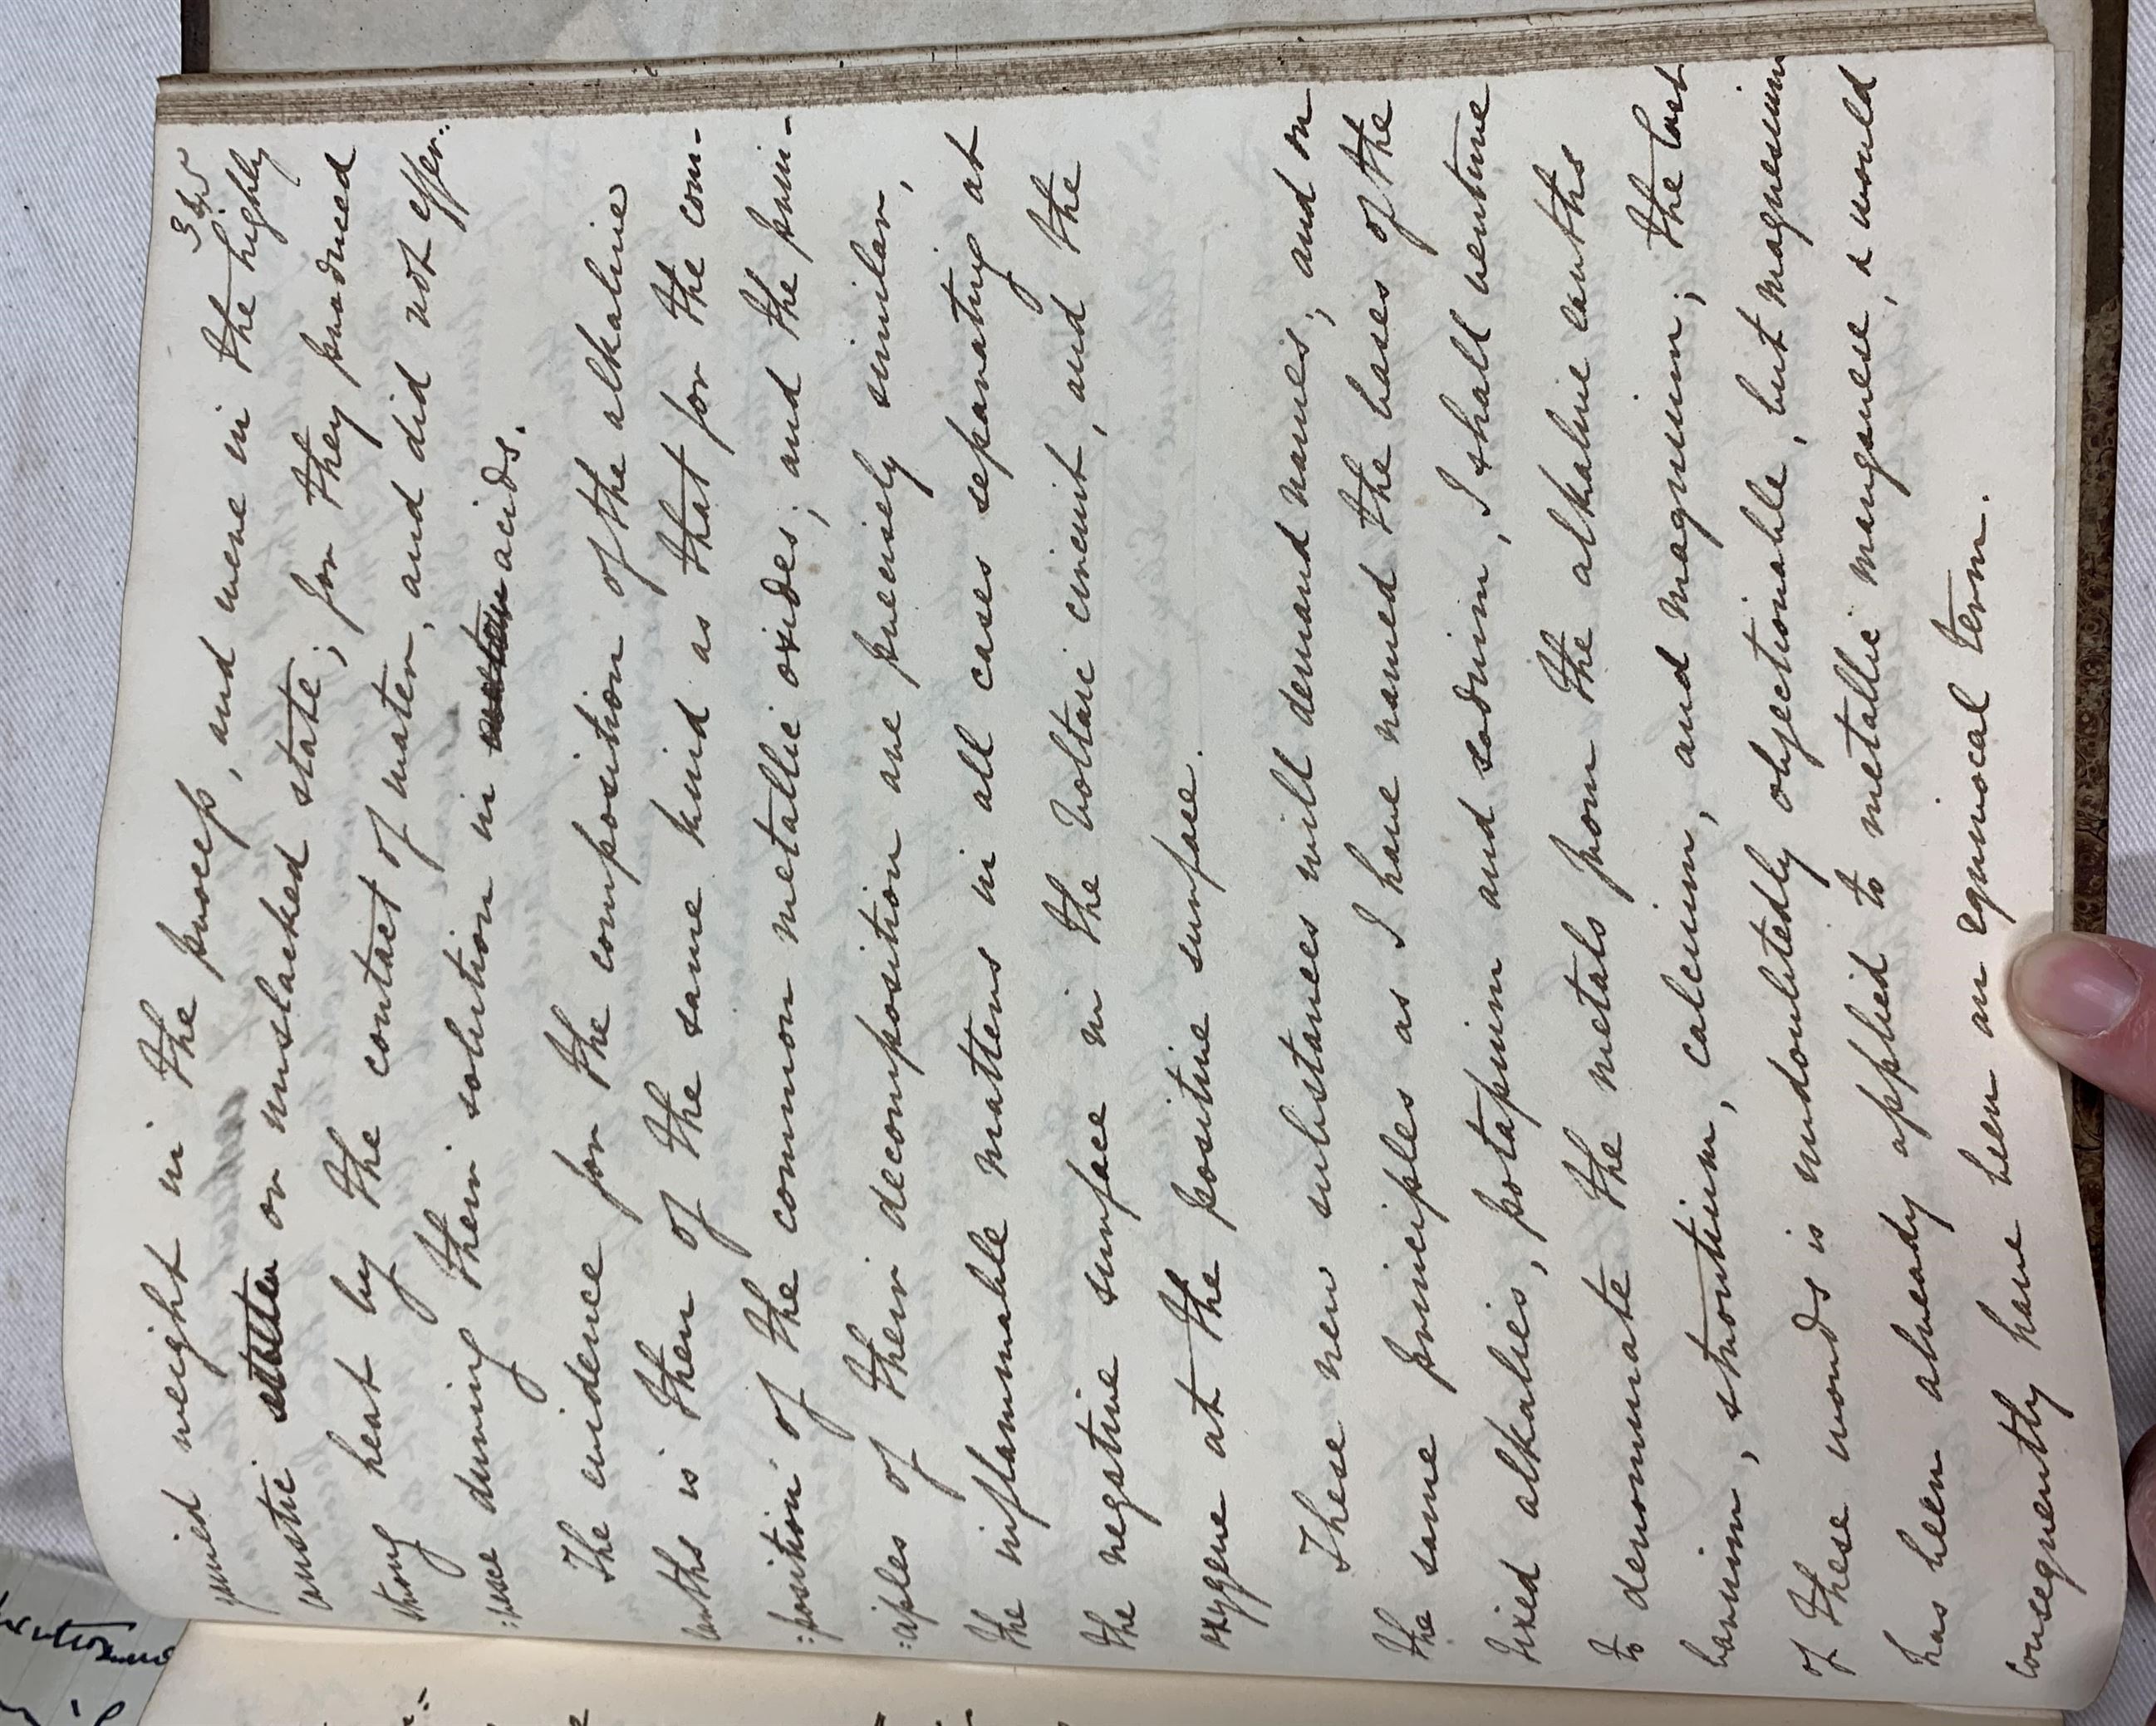 345
gained weight in the process, and were in the highly
caustic or unslacked state; for they produced
strong heat by the contact of water, and did not effer-
:vesce during their solution in acids.
The evidence for the composition of the alkaline
earths is then of the same kind as that for the com-
:position of the common metallic oxides; and the prin-
:ciples of their decomposition are precisely similar,
the inflammable matters in all cases separating at
the negative surface in the Voltaic circuit, and the
oxygene at the positive surface.
These new substances will demand names; and on
the same principles as I have named the bases of the
fixed alkalies, potassium and sodium, I shall venture
to denominate the metals from the alkaline earths
barium, strontium, calcium, and magnium; the last
of these words is undoubtedly objectionable, but magnesium
has been already applied to metallic manganese, & would
consequently have been an equivocal term.